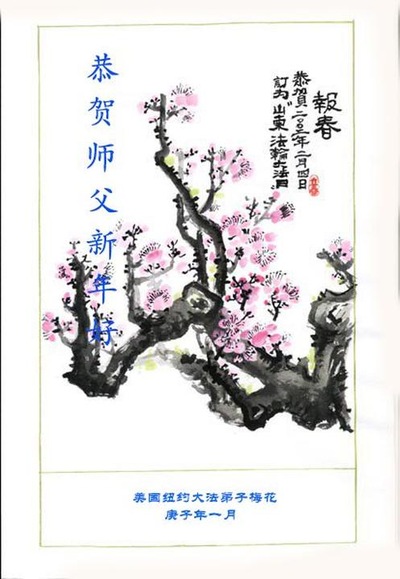 恭贺师父新年好
報春
恭賀二〇二〇年二月四日
訂为"山東法輪大法日
美国纽约大法弟子梅花
庚子年一月